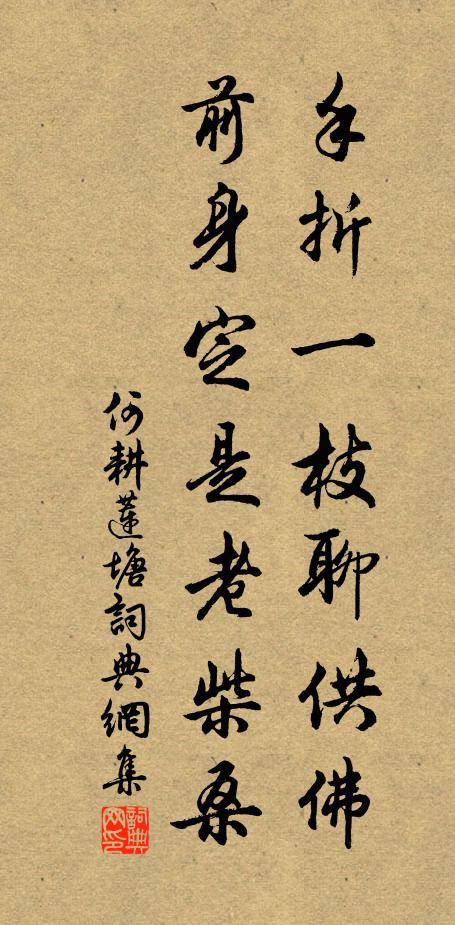 手折一枝聊供佛
前身定是老柴桑
何耕蓮塘詞典網集
詞典網印